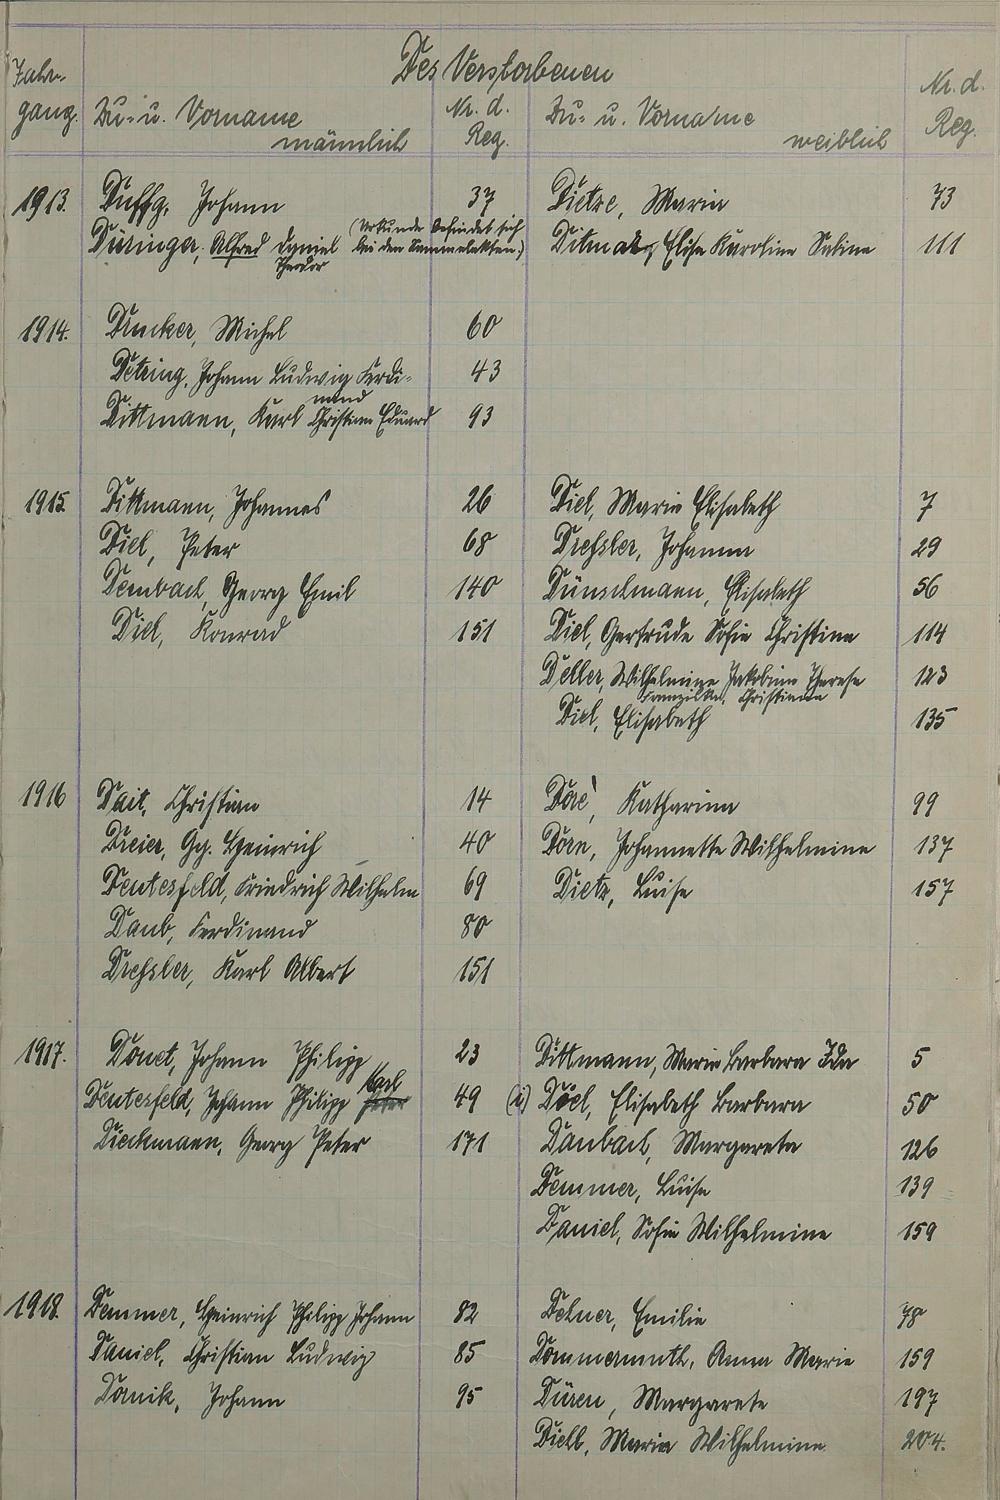 Des Verstorbenen
Jahr-
gang.
Zu- u. Vorname
männlich
Nr. d.
Reg.
Zu- u. Vorname
weiblich
Nr. d.
Reg.
1913. Duffg, Johann 37 Dietze, Maria 73
Düringer, Alfred Daniel (Urkunde befindet sich Ditmar, Elise Karoline Sabine 111
Theodor bei den Sammelakten.)
1914. Drucker, Michel 60
Detring, Johann Ludwig Ferdi- 43
nand
Dittmann, Karl Christian Eduard 93
1915 Dittmann, Johannes 26 Diel, Marie Elisabeth 7
Diel, Peter 68 Dressler, Johanna 29
Dembach, Georg Emil 140 Dünschmann, Elisabeth 56
Diel, Konrad 151 Diel, Gertrude Sofie Christine 114
Deller, Wilhelmine Jakobine Therese 123
Franziska, Christiane
Diel, Elisabeth 135
1916 Dait, Christian 14 Doré, Katharina 99
Dreier, Gg. Heinrich 40 Dorn, Johannette Wilhelmine 137
Deutesfeld, Friedrich Wilhelm 69 Dietz, Luise 157
Daub, Ferdinand 80
Dressler, Karl Albert 151
1917. Donet, Johann Philipp 23 Dittmann, Marie Barbara Ida 5
Karl
Deutesfeld, Johann Philipp Peter 49 (i) Döel, Elisabeth Barbara 50
Dieckmann, Georg Peter 171 Daubach, Margareta 126
Demmer, Luise 139
Daniel, Sofie Wilhelmine 159
1918. Demmer, Heinrich Philipp Johann 82 Dehner, Emilie 78
Daniel, Christian Ludwig 85 Dommermuth, Anna Marie 159
Dornik, Johann 95 Düren, Margarete 197
Diehl, Maria Wilhelmine 204.